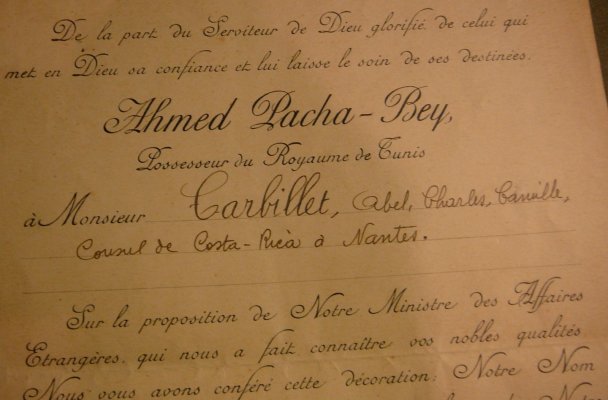 De la part du Serviteur de Dieu glorifié, de celui qui
met en Dieu sa confiance et lui laisse le soin de ses destinées.
Ahmed Pacha-Bey,
Possesseur du Royaume de Tunis
à Monsieur Carbillet, Abel, Charles, Camille,
Consul de Costa-Rica à Nantes.
Sur la proposition de Notre Ministre des Affaires
Etrangères, qui nous a fait connaître vos nobles qualités
Nous vous avons conféré cette décoration; Notre Nom